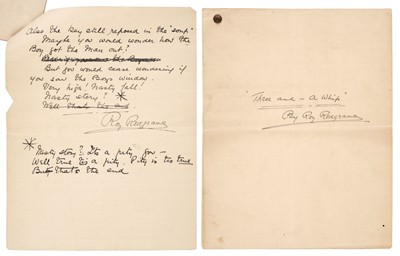 Also the Boy still reposed in the "soup"
Maybe you would wonder how the
Boy got the Man out?
But you would cease wondering if
you saw the Boys window.
Very high! Nasty fall!
Nasty story? *
Well that's the end
Roy Redgrave
* Nasty story? Its a pity you –
Well true Its a pity. Pity is its true
But that's the end
"Three and – A Whip"
By Roy Redgrave